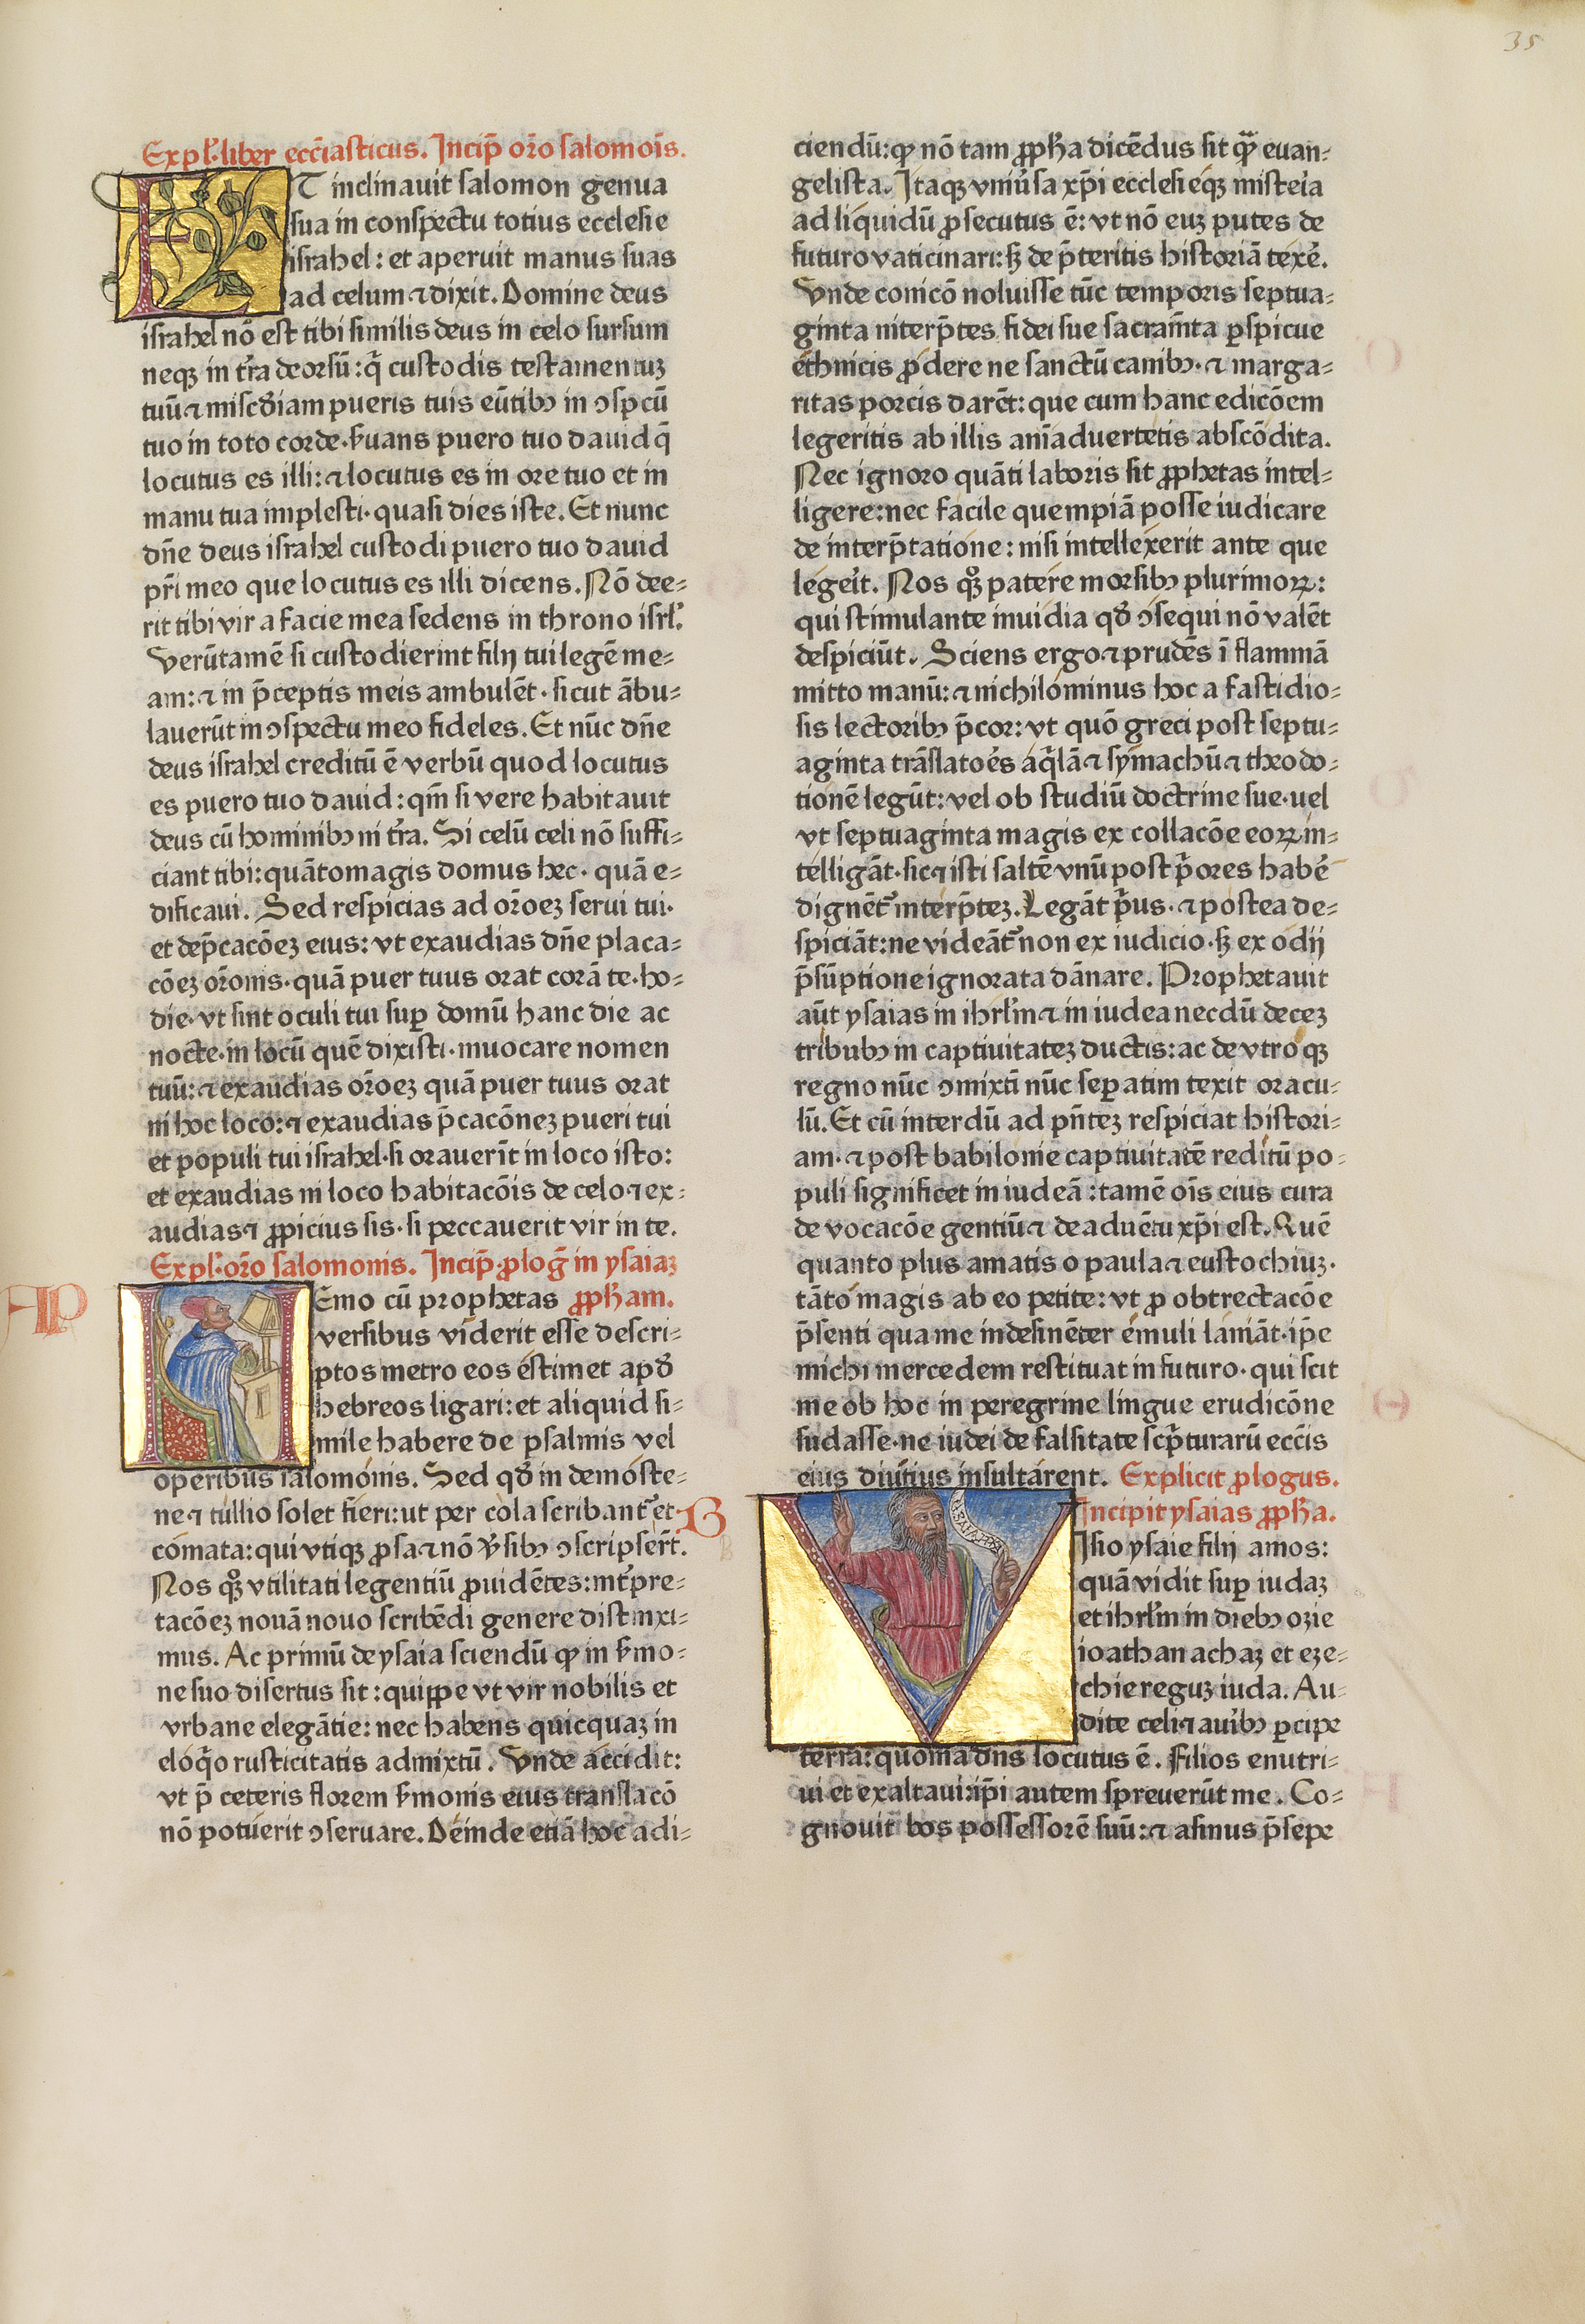 35
Expl̄. liber ecc̄iasticus. Incip̄ or̄o salomoīs.
ET inclinauit salomon genua
sua in conspectu totius ecclesie
israhel: et aperuit manus suas
ad celum ⁊ dixit. Domine deus
israhel nō est tibi similis deus in celo sursum
neqꝫ in tr̄a deorsū: q̄ custodis testamentuꝫ
tuū ⁊ misc̄diam pueris tuis eūtibꝰ in ꝯspcū
tuo in toto corde. s̄uans puero tuo dauid q̄
locutus es illi: ⁊ locutus es in ore tuo et in
manu tua implesti. quasi dies iste. Et nunc
dn̄e deus israhel custodi puero tuo dauid
pr̄i meo que locutus es illi dicens. Nō dee-
rit tibi vir a facie mea sedens in throno isrl̄.
Verūtamē si custodierint filij tui legē me-
am: ⁊ in p̄ceptis meis ambulēt. sicut ābu-
lauerūt in ꝯspectu meo fideles. Et nūc dn̄e
deus israhel creditū ē verbū quod locutus
es puero tuo dauid: qm̄ si vere habitauit
deus cū hominibꝰ in tr̄a. Si celū celi nō suffi-
ciant tibi: quātomagis domus hec. quā e-
dificaui. Sed respicias ad or̄oeꝫ serui tui.
et dep̄cacōeꝫ eius: vt exaudias dn̄e placa-
cōeꝫ or̄onis. quā puer tuus orat corā te. ho-
die. vt sint oculi tui suꝑ domū hanc die ac
nocte. in locū quē dixisti. inuocare nomen
tuū: ⁊ exaudias or̄oeꝫ quā puer tuus orat
in hoc loco: ⁊ exaudias p̄cacōneꝫ pueri tui
et populi tui israhel. si orauerīt in loco isto:
et exaudias in loco habitacōis de celo ⁊ ex-
audias ⁊ ꝓpicius sis. si peccauerit vir in te.
Expl̄. or̄o salomonis. Incip̄. ꝓloḡ in ysaiaꝫ
AP
NEmo cū prophetas ꝓph̄am.
versibus viderit esse descri-
ptos metro eos estimet apd̄
hebreos ligari: et aliquid si-
mile habere de psalmis vel
operibus salomonis. Sed qd̄ in demoste-
ne ⁊ tullio solet fieri: ut per cola scribant᷑ et
B
comata: qui vtiqꝫ ꝓsa ⁊ nō v̄sibꝰ ꝯscripser̄t.
Nos qꝫ vtilitati legentiū ꝓuidētes: int̄pre-
tacōeꝫ nouā nouo scribēdi genere distinxi-
mus. Ac primū de ysaia sciendū ꝙ in s̄mo-
ne suo disertus sit: quippe vt vir nobilis et
vrbane elegātie: nec habens quicquaꝫ in
eloq̄o rusticitatis admixtū. Vnde accidit:
vt p̄ ceteris florem s̄monis eius translacō
nō potuerit ꝯseruare. Deinde etiā hoc adi-
ciendū: ꝙ nō tam ꝓph̄a dicēdus sit qᷓ euan-
gelista. Itaqꝫ vniūsa xp̄i ecclesieqꝫ misteīa
ad liquidū ꝓsecutus ē: vt nō euꝫ putes de
futuro vaticinari: sꝫ de p̄teritis historiā texē.
Vnde conicō noluisse tūc temporis septua-
ginta interp̄tes fidei sue sacram̄ta ꝑspicue
ethnicis ꝓdere ne sanctū canibꝰ. ⁊ marga-
ritas porcis darēt: que cum hanc edicōem
legeritis ab illis aniaduertetis abscōdita.
Nec ignoro quāti laboris sit ꝓphetas intel-
ligere: nec facile quempiā posse iudicare
de interp̄tatione: nisi intellexerit ante que
legeīt. Nos qꝫ patere morsibꝰ plurimoꝝ:
qui stimulante inuidia qd̄ ꝯsequi nō valēt
despiciūt. Sciens ergo ⁊ prudēs ī flammā
mitto manū: ⁊ nichilominus hoc a fastidio-
sis lectoribꝰ p̄cor: vt quō greci post septu-
aginta trāslatoēs aq̄lā ⁊ symachū ⁊ theodo-
tionē legūt: vel ob studiū doctrine sue. uel
vt septuaginta magis ex collacōe eoꝝ in-
telligāt. sic ⁊ isti saltē vnū post p̄ores habē
dignēt᷑ interp̄teꝫ. Legāt p̄us. ⁊ postea de-
spiciāt: ne videāt᷑ non ex iudicio. sꝫ ex odij
p̄sūptione ignorata dānare. Prophetauit
aūt ysaias in ihrl̄m ⁊ in iudea necdū deceꝫ
tribubꝰ in captiuitateꝫ ductis: ac de vtroqꝫ
regno nūc ꝯmixtī nūc separatim texit oracu-
lū. Et cū interdū ad pn̄teꝫ respiciat histori-
am. ⁊ post babilonie captiuitatē reditū po-
puli significet in iudeā: tamē oīs eius cura
de vocacōe gentiū ⁊ de aduētu xp̄i est. Quē
quanto plus amatis o paula ⁊ eustochiuꝫ.
tāto magis ab eo petite: vt ꝓ obtrectacōe
p̄senti qua me indesinēter emuli laniāt. ip̄e
michi mercedem restituat in futuro. qui scit
me ob hoc in peregrine lingue erudicōne
sudasse. ne iudei de falsitate scp̄turarū ecc̄is
eius diutius insultarent. Explicit ꝓlogus.
Incipit ysaias ꝓph̄a.
VIsio ysaie filij amos:
quā vidit suꝑ iudaꝫ
et ihrl̄m in diebꝰ ozie
ioathan achaꝫ et eze-
chie reguꝫ iuda. Au-
dite celi ⁊ auibꝰ ꝑcipe
terra: quoniā dn̄s locutus ē. Filios enutri-
ui et exaltaui: ip̄i autem spreuerūt me. Co-
gnouit bos possessorē suū: ⁊ asinus p̄sepe